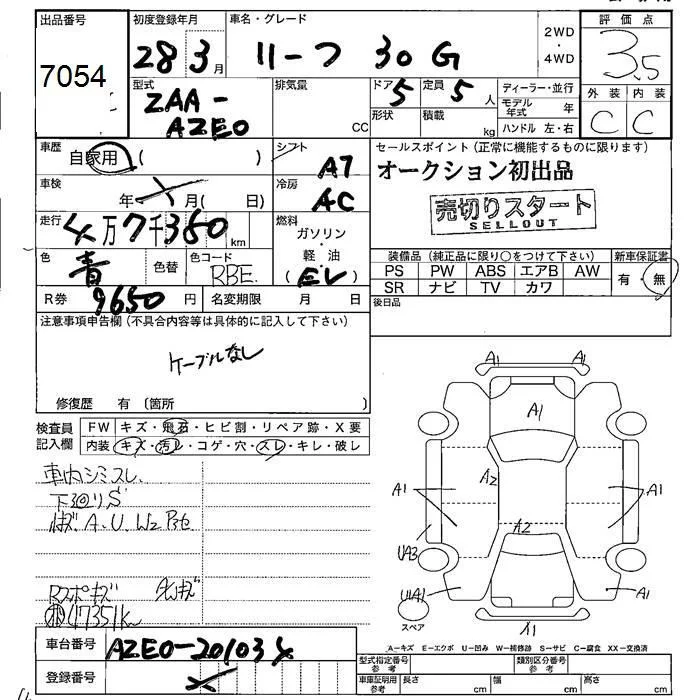 出品番号
7054
初度登録年月
28 3月
車名・グレード
リーフ 30 G
2WD
・
4WD
評価点
3.5
外装 内装
C C
型式
ZAA-
AZE0
排気量
CC
ドア 5
定員 5 人
形状
積載 kg
ディーラー・並行
モデル年式 年
ハンドル 左・右
車歴
自家用 ( )
シフト
AT
セールスポイント (正常に機能するものに限ります)
オークション初出品
売切りスタート
SELLOUT
車検
年 月( 日)
冷房
AC
走行
4万7千360 km
燃料
ガソリン
・
軽・油
( EV )
色
青
色替
色コード
RBE
装備品 (純正品に限り〇をつけて下さい)
新車保証書
PS PW ABS エアB AW
SR ナビ TV カワ
有・無
R券 9650 円
名変期限 月 日
後日品
注意事項申告欄 (不具合内容等は具体的に記入して下さい)
ケーブルなし
修復歴 有 (箇所 )
検査員
記入欄
FW キズ・飛石・ヒビ割・リペア跡・X要
内装 キズ・汚レ・コゲ・穴・スレ・キレ・破レ
車内シミスレ
下廻りS
A.U.W2
47351k
A1
A1
A1
A2
A1
A1
A2
UA3
A1
X1
スペア
車台番号
AZE0-201034
登録番号
A=キズ E=エクボ U=凹み W=補修跡 S=サビ C=腐食 XX=交換済
型式指定番号
参考
類別区分番号
参考
車庫証明用
参考
長さ cm
幅 cm
高さ cm